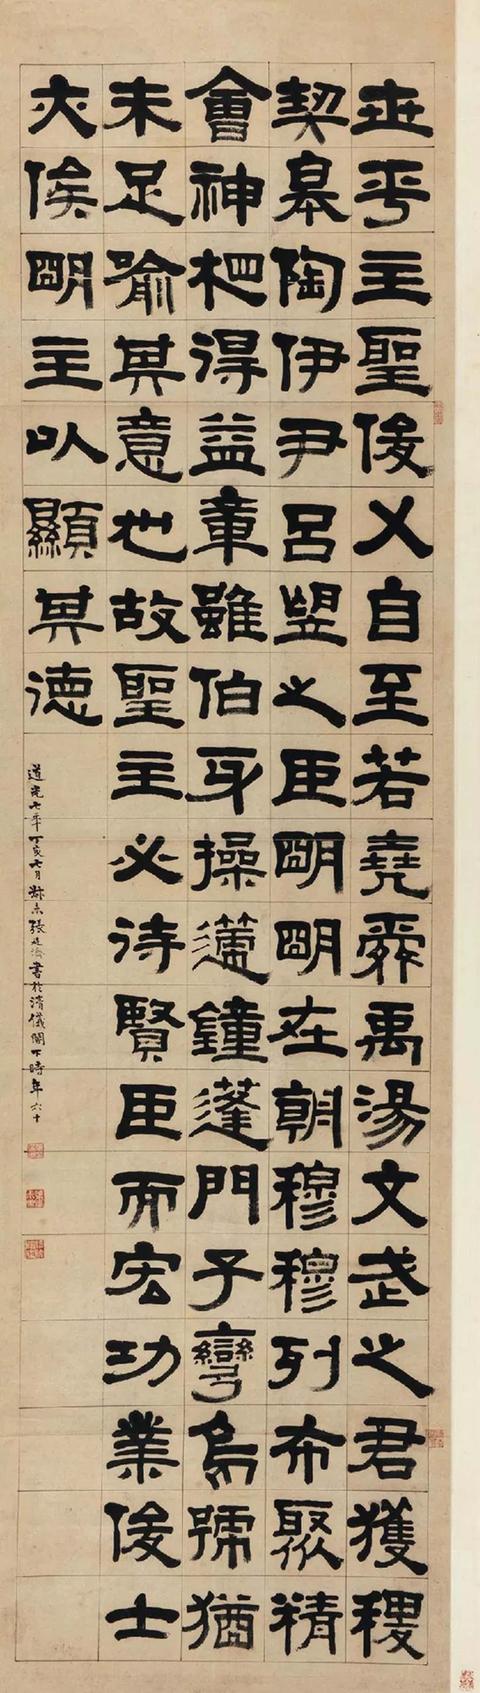 世平主聖俊乂自至若堯舜禹湯文武之君獲稷
契皋陶伊尹呂望之臣明明在朝穆穆列布聚精
會神相得益章雖伯牙操蘧鐘蓬門子彎烏號猶
未足喻其意也故聖主必待賢臣而宏功業俊士
亦俟明主以顯其德
道光七年丁亥七月叔未張廷濟書於清儀閣下時年六十